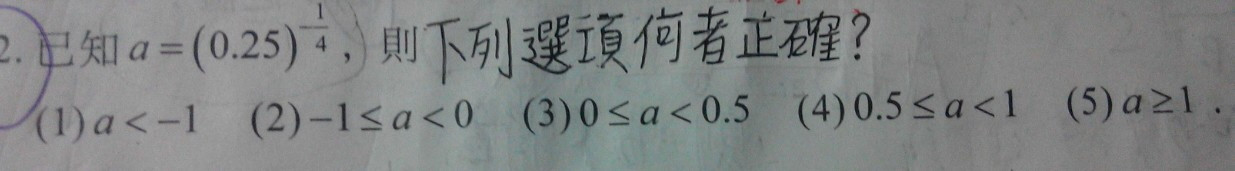 2. 已知 a = (0.25)^{-\frac{1}{4}}, 則下列選項何者正確?
(1) a < -1 (2) -1 ≤ a < 0 (3) 0 ≤ a < 0.5 (4) 0.5 ≤ a < 1 (5) a ≥ 1 .